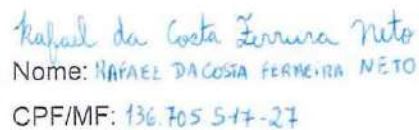 Rafael da Costa Ferreira Neto
Nome: RAFAEL DA COSTA FERREIRA NETO
CPF/MF: 136.705 517-27